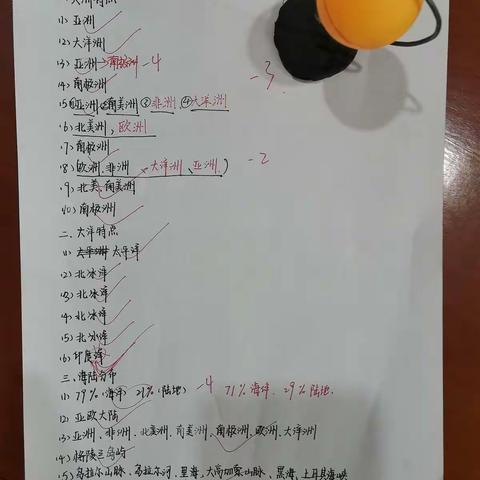 大洲特点
(1) 亚洲
(2) 大洋洲
(3) 亚洲→南极洲 -4
(4) 南极洲 -3
(5) ①亚洲 ②南美洲 ③非洲 ④大洋洲
(6) 北美洲,欧洲
(7) 南极洲
(8) 欧洲、非洲 大洋洲、亚洲) -2
(9) 北美、南美洲
(10) 南极洲
二、大洋特点
(1) 太平洋
(2) 北冰洋
(3) 北冰洋
(4) 北冰洋
(5) 北冰洋
(6) 印度洋
三、海陆分布
(1) 79%(海洋) 21%(陆地) -4 71%海洋、29%陆地.
(2) 亚欧大陆
(3) 亚洲、非洲、北美洲、南美洲、南极洲、欧洲、大洋洲
(4) 格陵兰岛屿
(5) 乌拉尔山脉、乌拉尔河、里海、大高加索山脉、黑海、土耳其海峡